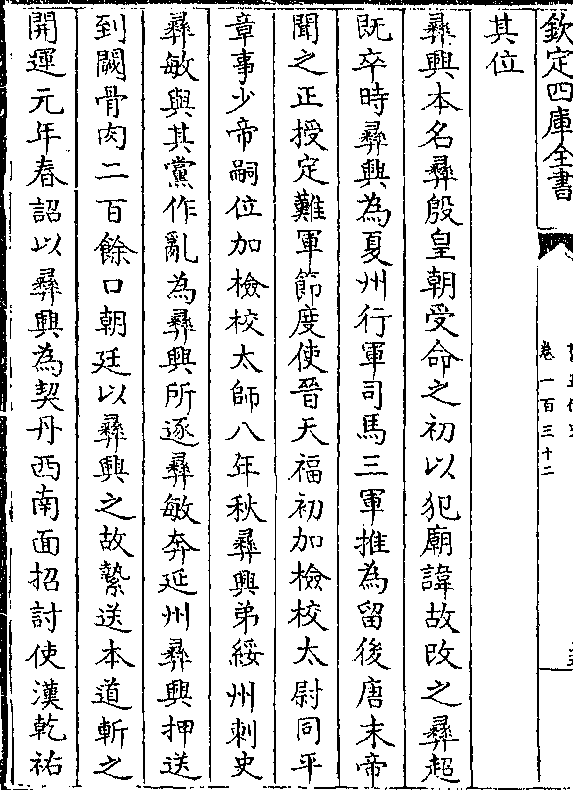 欽定四庫全書
卷一百三十二
其位
彞興本名彞殷皇朝受命之初以犯廟諱故改之彞超
既卒時彞興為夏州行軍司馬三軍推為留後唐末帝
聞之正授定難軍節度使晉天福初加檢校太尉同平
章事少帝嗣位加檢校太師八年秋彞興弟綏州刺史
彞敏與其黨作亂為彞興所逐彞敏奔延州彞興押送
到闕骨肉二百餘口朝廷以彞興之故縶送本道斬之
開運元年春詔以彞興為契丹西南面招討使漢乾祐